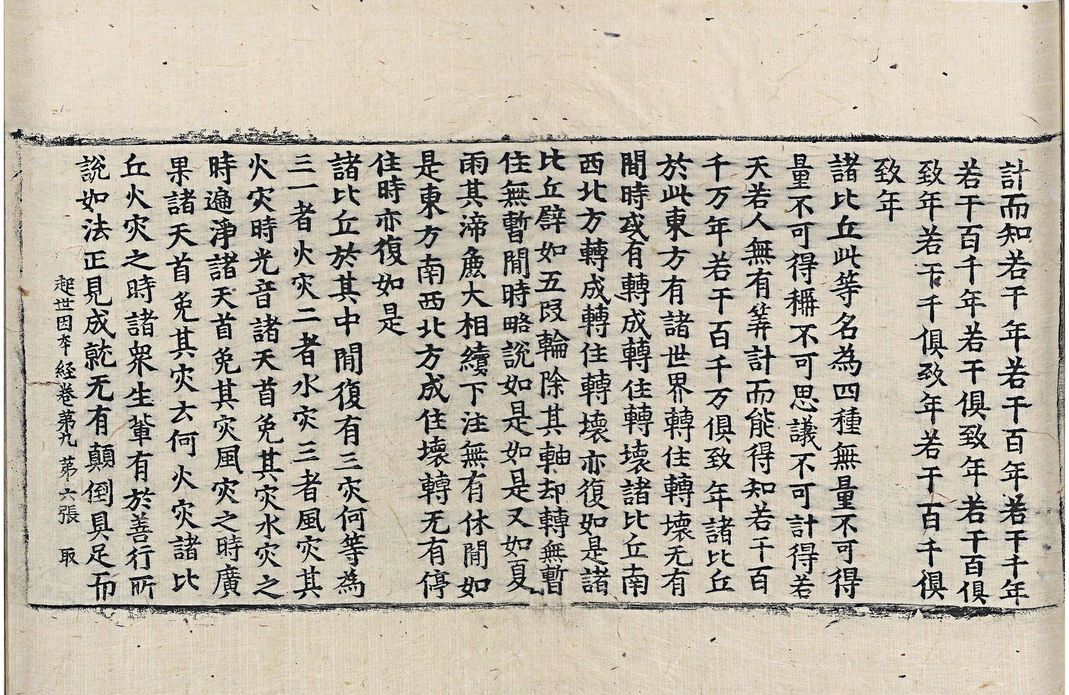 計而知若干年若干百年若干千年
若干百千年若干俱致年若干百俱
致年若干千俱致年若干百千俱
致年
諸比丘此等名為四種無量不可得
量不可得稱不可思議不可計得若
天若人無有筭計而能得知若干百
千万年若干百千万俱致年諸比丘
於此東方有諸世界轉住轉壞无有
間時或有轉成轉住轉壞諸比丘南
西北方轉成轉住轉壞亦復如是諸
比丘譬如五段輪除其軸却轉無暫
住無暫閒時略說如是如是又如夏
雨其渧麁大相續下注無有休閒如
是東方南西北方成住壞轉无有停
住時亦復如是
諸比丘於其中閒復有三灾何等為
三一者火灾二者水灾三者風灾其
火灾時光音諸天首免其灾水灾之
時遍淨諸天首免其灾風灾之時廣
果諸天首免其灾云何火灾諸比
丘火灾之時諸眾生輩有於善行所
說如法正見成就无有顛倒具足而
起世因夲経卷第九 第六張 取